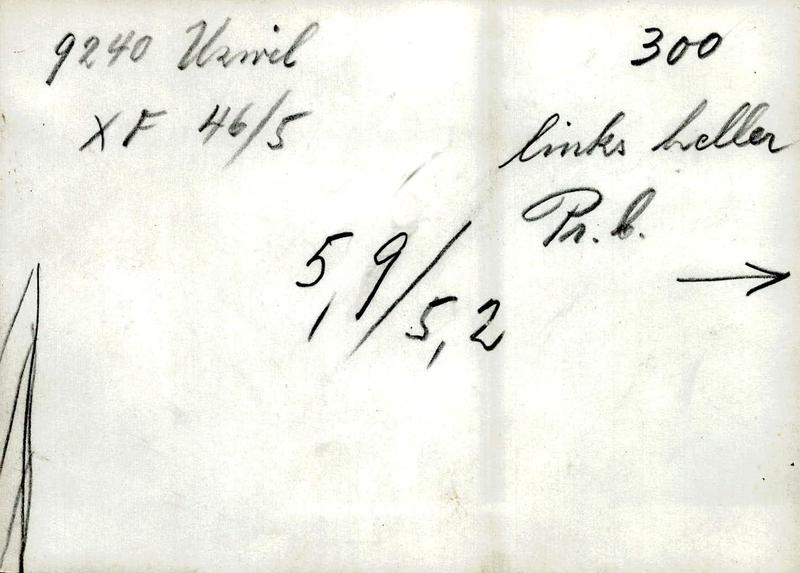 9240 Uzwil
300
XF 46/5
links heller
Pr. b.
5,9/5,2